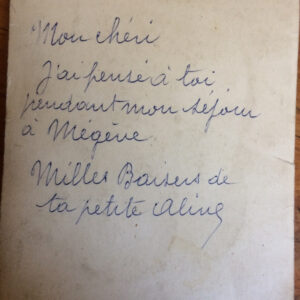 Mon chéri
J'ai pensé à toi
pendant mon séjour
à Mégève
Milles Baisers de
ta petite Aline